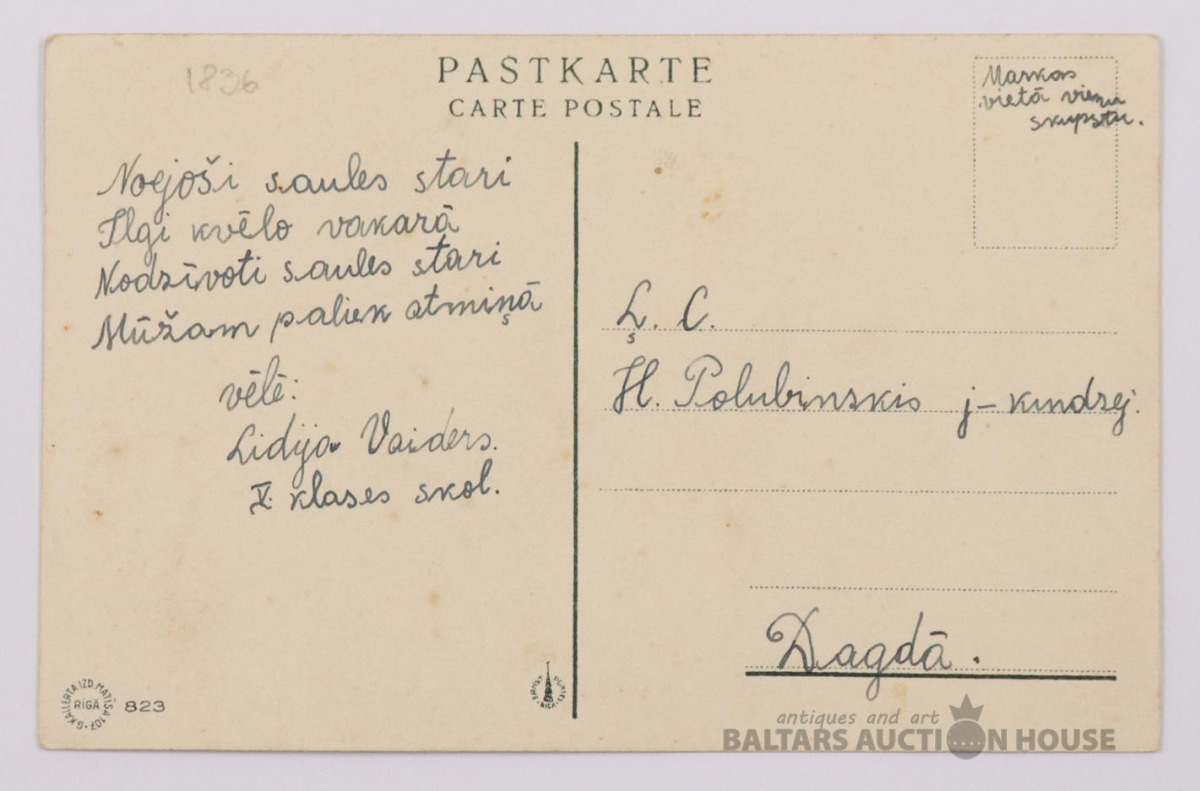 1836
PASTKARTE
CARTE POSTALE
Markas
vietā vienu
skupstu.
Noejoši saules stari
Ilgi kvēlo vakarā
Nodzīvoti saules stari
Mūžam paliek atmiņā
vēlē:
Lidija Vaiders.
V. klases skol.
Ļ. C.
H. Polubinskis j-kundzej.
Dagdā.
G.KALLERTA IZD. MATĪSA 107
RĪGĀ
823
antiques and art
BALTARS AUCTION HOUSE